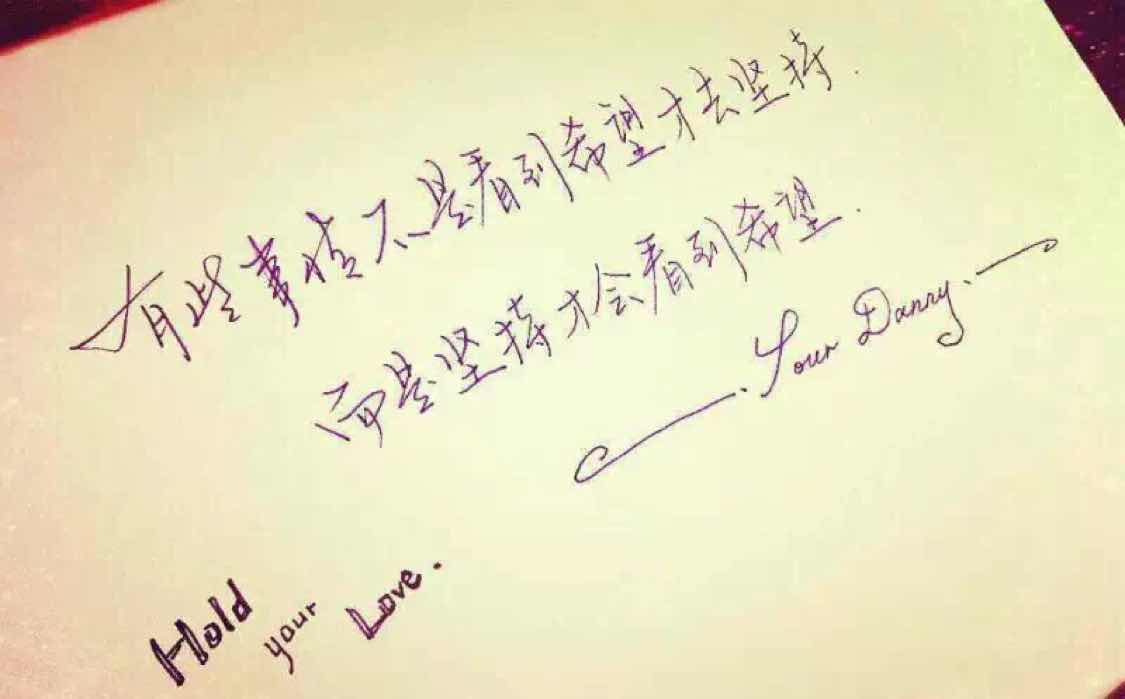 有些事情不是看到希望才去坚持.
而是坚持才会看到希望.
—. Your Danny. —
Hold your Love.